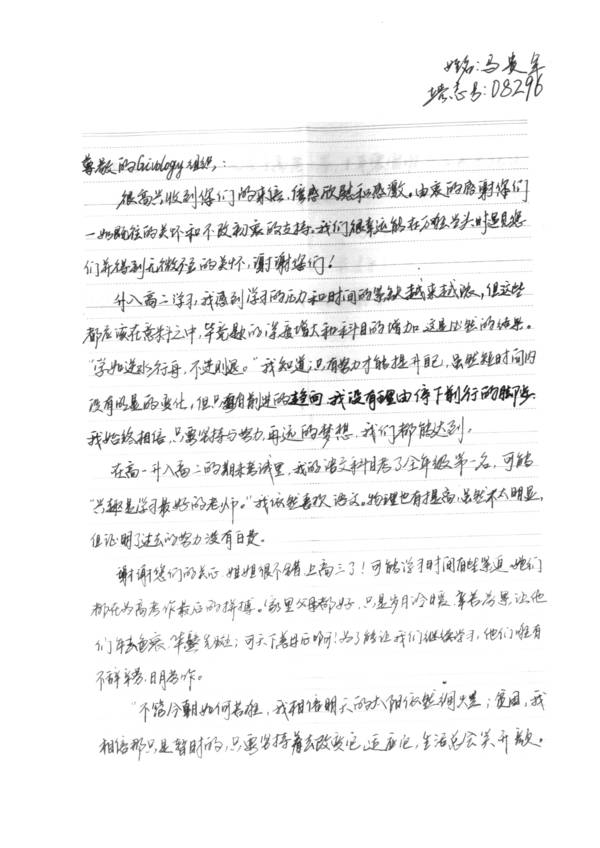 姓名:马贵军
档志号:08296
尊敬的Givology组织,:
很高兴收到你们的来信,倍感欣慰和感激。由衷的感谢你们
一如既往的关怀和不改初衷的支持。我们很幸运能在万难当头时遇见您
们并得到无微不至的关怀,谢谢您们!
升入高二学习,我感到学习的压力和时间的紧缺越来越浓,但这些
都应该在意料之中,毕竟题的深度增大和科目的增加,这是必然的结果。
“学如逆水行舟,不进则退。”我知道只有努力才能提升自己,虽然短时间内
没有明显的变化,但只要有前进的趋向,我没有理由停下前行的脚步。
我始终相信,只要坚持与努力,再远的梦想,我们都能达到。
在高一升入高二的期末考试里,我的语文科目考了全年级第一名,可能
“兴趣是学习最好的老师。”我依然喜欢语文。物理也有提高,虽然不太明显,
但证明了过去的努力没有白费。
谢谢您们的关心,姐姐很不错,上高三了!可能学习时间有些紧迫,她们
都在为高考作最后的拼搏。家里父母都好,只是岁月冷暖,辛苦劳累,让他
们年去色衰,华鬓斑;可天下善母心啊!为了能让我们继续学习,他们唯有
不辞辛劳,日日劳作。
“不管今朝如何苦难,我相信明天的太阳依然绸火是;贫困,我
相信那只是暂时的,只要坚持着去改变它,适应它,生活总会笑开颜。